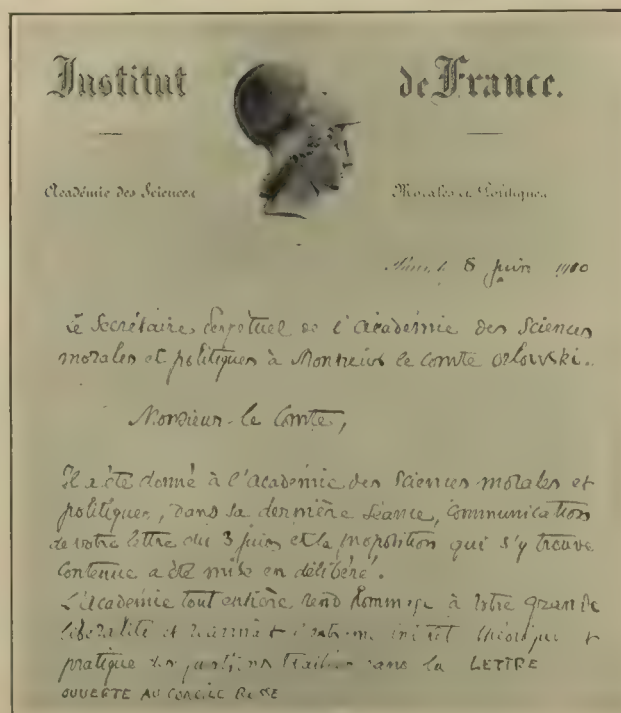 Institut de France.
Académie des Sciences Morales et Politiques
Paris, le 8 juin 1910
Le Secrétaire Perpétuel de l'Académie des Sciences
morales et politiques à Monsieur le Comte Orlowski.
Monsieur le Comte,
Il a été donné à l'Académie des Sciences morales et
politiques, dans sa dernière séance, communication
de votre lettre du 3 juin et la proposition qui s'y trouve
contenue a été mise en délibéré.
L'Académie tout entière rend hommage à votre grande
libéralité et intérêt théorique et
pratique des questions traitées dans la LETTRE
OUVERTE AU